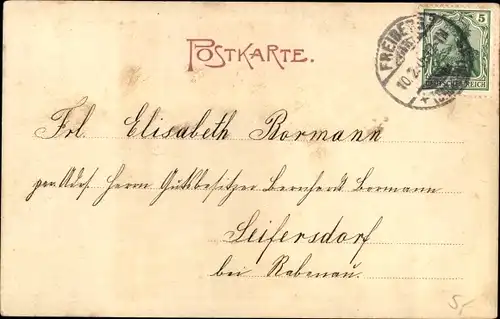 POSTKARTE.
5
DEUTSCHES REICH
FREIBERG
10.2.
Frl. Elisabeth Bormann
per Adr. Herrn Gutsbesitzer Bernhard Bormann
Seifersdorf
bei Rabenau.
5,-